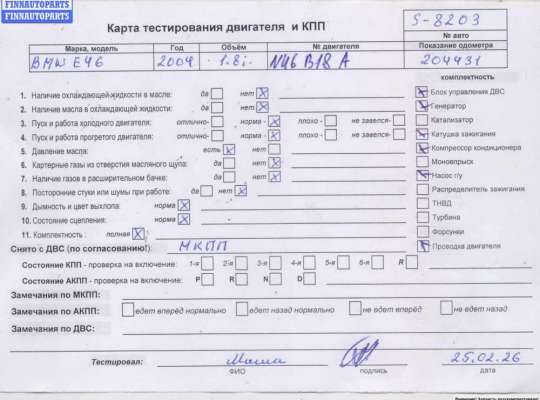 FINNAUTOPARTS
FINNAUTOPARTS
Карта тестирования двигателя и КПП
S-8203
№ авто
Марка, модель Год Объём № двигателя Показание одометра
BMW E46 2004 1.8i N46 B18 A 204431
комплектность
1. Наличие охлаждающей жидкости в масле: да нет X
2. Наличие масла в охлаждающей жидкости: да нет X
3. Пуск и работа холодного двигателя: отлично- норма - X плохо - не завелся-
4. Пуск и работа прогретого двигателя: отлично- норма - X плохо - не завелся-
5. Давление масла: есть X нет
6. Картерные газы из отверстия масляного щупа: да нет X
7. Наличие газов в расширительном бачке: да нет X
8. Посторонние стуки или шумы при работе: да нет X
9. Дымность и цвет выхлопа: норма X
10. Состояние сцепления: норма X
11. Комплектность : полная X
X Блок управления ДВС
X Генератор
Катализатор
X Катушка зажигания
X Компрессор кондиционера
Моновпрыск
X Насос г/у
Распределитель зажигания
ТНВД
Турбина
Форсунки
X Проводка двигателя
Снято с ДВС (по согласованию!): МКПП
Состояние КПП - проверка на включение: 1-я 2-я 3-я 4-я 5-я 6-я R
Состояние АКПП - проверка на включение: P R N D
Замечания по МКПП:
Замечания по АКПП: едет вперёд нормально едет назад нормально не едет вперёд не едет назад
Замечания по ДВС:
Тестировал: Маша 25.02.26
ФИО подпись дата